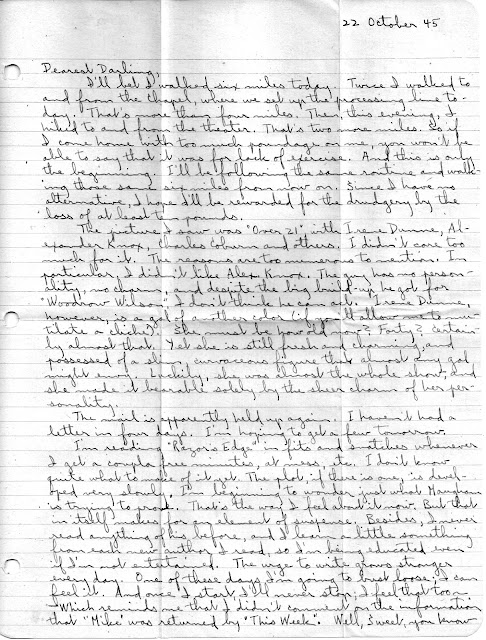 22 October 45
Dearest Darling,
I'll bet I walked six miles today. Twice I walked to
and from the chapel, where we set up the processing line to-
day. That's more than four miles. Then, this evening, I
hiked to and from the theater. That's two more miles. So if
I come home with too much poundage on me, you won't be
able to say that it was for lack of exercise. And this is only
the beginning. I'll be following the same routine and walk-
ing those same six miles from now on. Since I have no
alternative, I hope I'll be rewarded for the drudgery by the
loss of at least ten pounds.
The picture I saw was "Over 21", with Irene Dunne, Al-
exander Knox, Charles Coburn and others. I didn't care too
much for it. The reasons are too numerous to mention. In
particular, I didn't like Alex Knox. The guy has no person-
ality, no charm, and despite the big build-up he got for
"Woodrow Wilson", I don't think he can act. Irene Dunne,
however, is a gal of another color (if you'll allow me to mu-
tilate a cliché). She must be, how old Forty? Certain-
ly almost that. Yet she is still fresh and charming, and
possessed of a slim, curvaceous figure that almost any gal
might envy. Luckily, she was almost the whole show, and
she made it bearable solely by the sheer charm of her per-
sonality.
The mail is apparently held up again. I haven't had a
letter in four days. I'm hoping to get a few tomorrow.
I'm reading "Razor's Edge" in fits and snatches whenever
I get a coupla free minutes, at mess, etc. I don't know
quite what to make of it yet. The plot, if there is any, is devel-
oped very slowly. I'm beginning to wonder just what Maugham
is trying to prove. That's the way I feel about it now. But that
in itself makes for an element of suspense. Besides, I never
read anything of his before, and I learn a little something
from each new author I read, so I'm being educated even
if I'm not entertained. The urge to write grows stronger
every day. One of these days I'm going to bust loose, I can
feel it. And once I start, I'll never stop, I feel that too.
Which reminds me that I didn't comment on the information
that "Mike" was returned by "This Week". Well, Sweet, you know